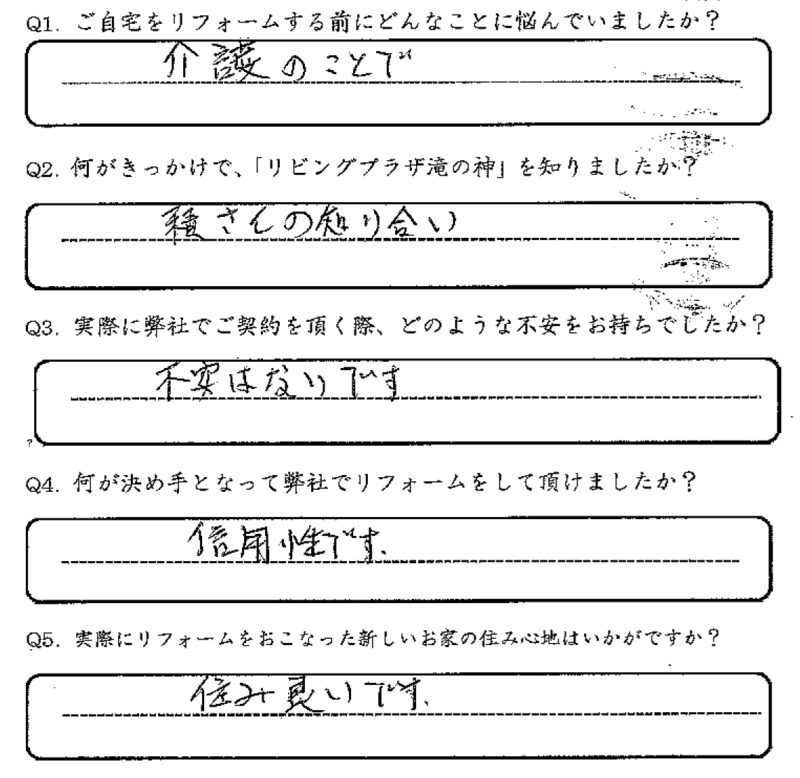 Q1. ご自宅をリフォームする前にどんなことに悩んでいましたか？
介護のことで
Q2. 何がきっかけで、「リビングプラザ滝の神」を知りましたか？
種さんの知り合い
Q3. 実際に弊社でご契約を頂く際、どのような不安をお持ちでしたか？
不安はないです
Q4. 何が決め手となって弊社でリフォームをして頂けましたか？
信用性です.
Q5. 実際にリフォームをおこなった新しいお家の住み心地はいかがですか？
住み良いです.